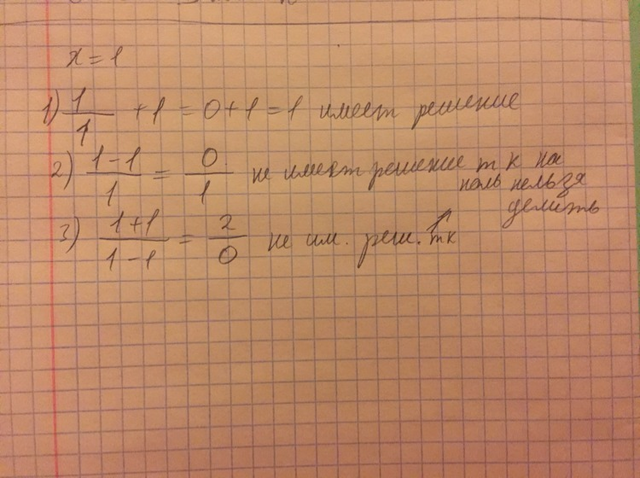 x = 1
1) 1/1 + 1 = 0 + 1 = 1 имеет решение
2) (1-1)/1 = 0/1 не имеет решение т к на
ноль нельзя
делить
3) (1+1)/(1-1) = 2/0 не им. реш. тк